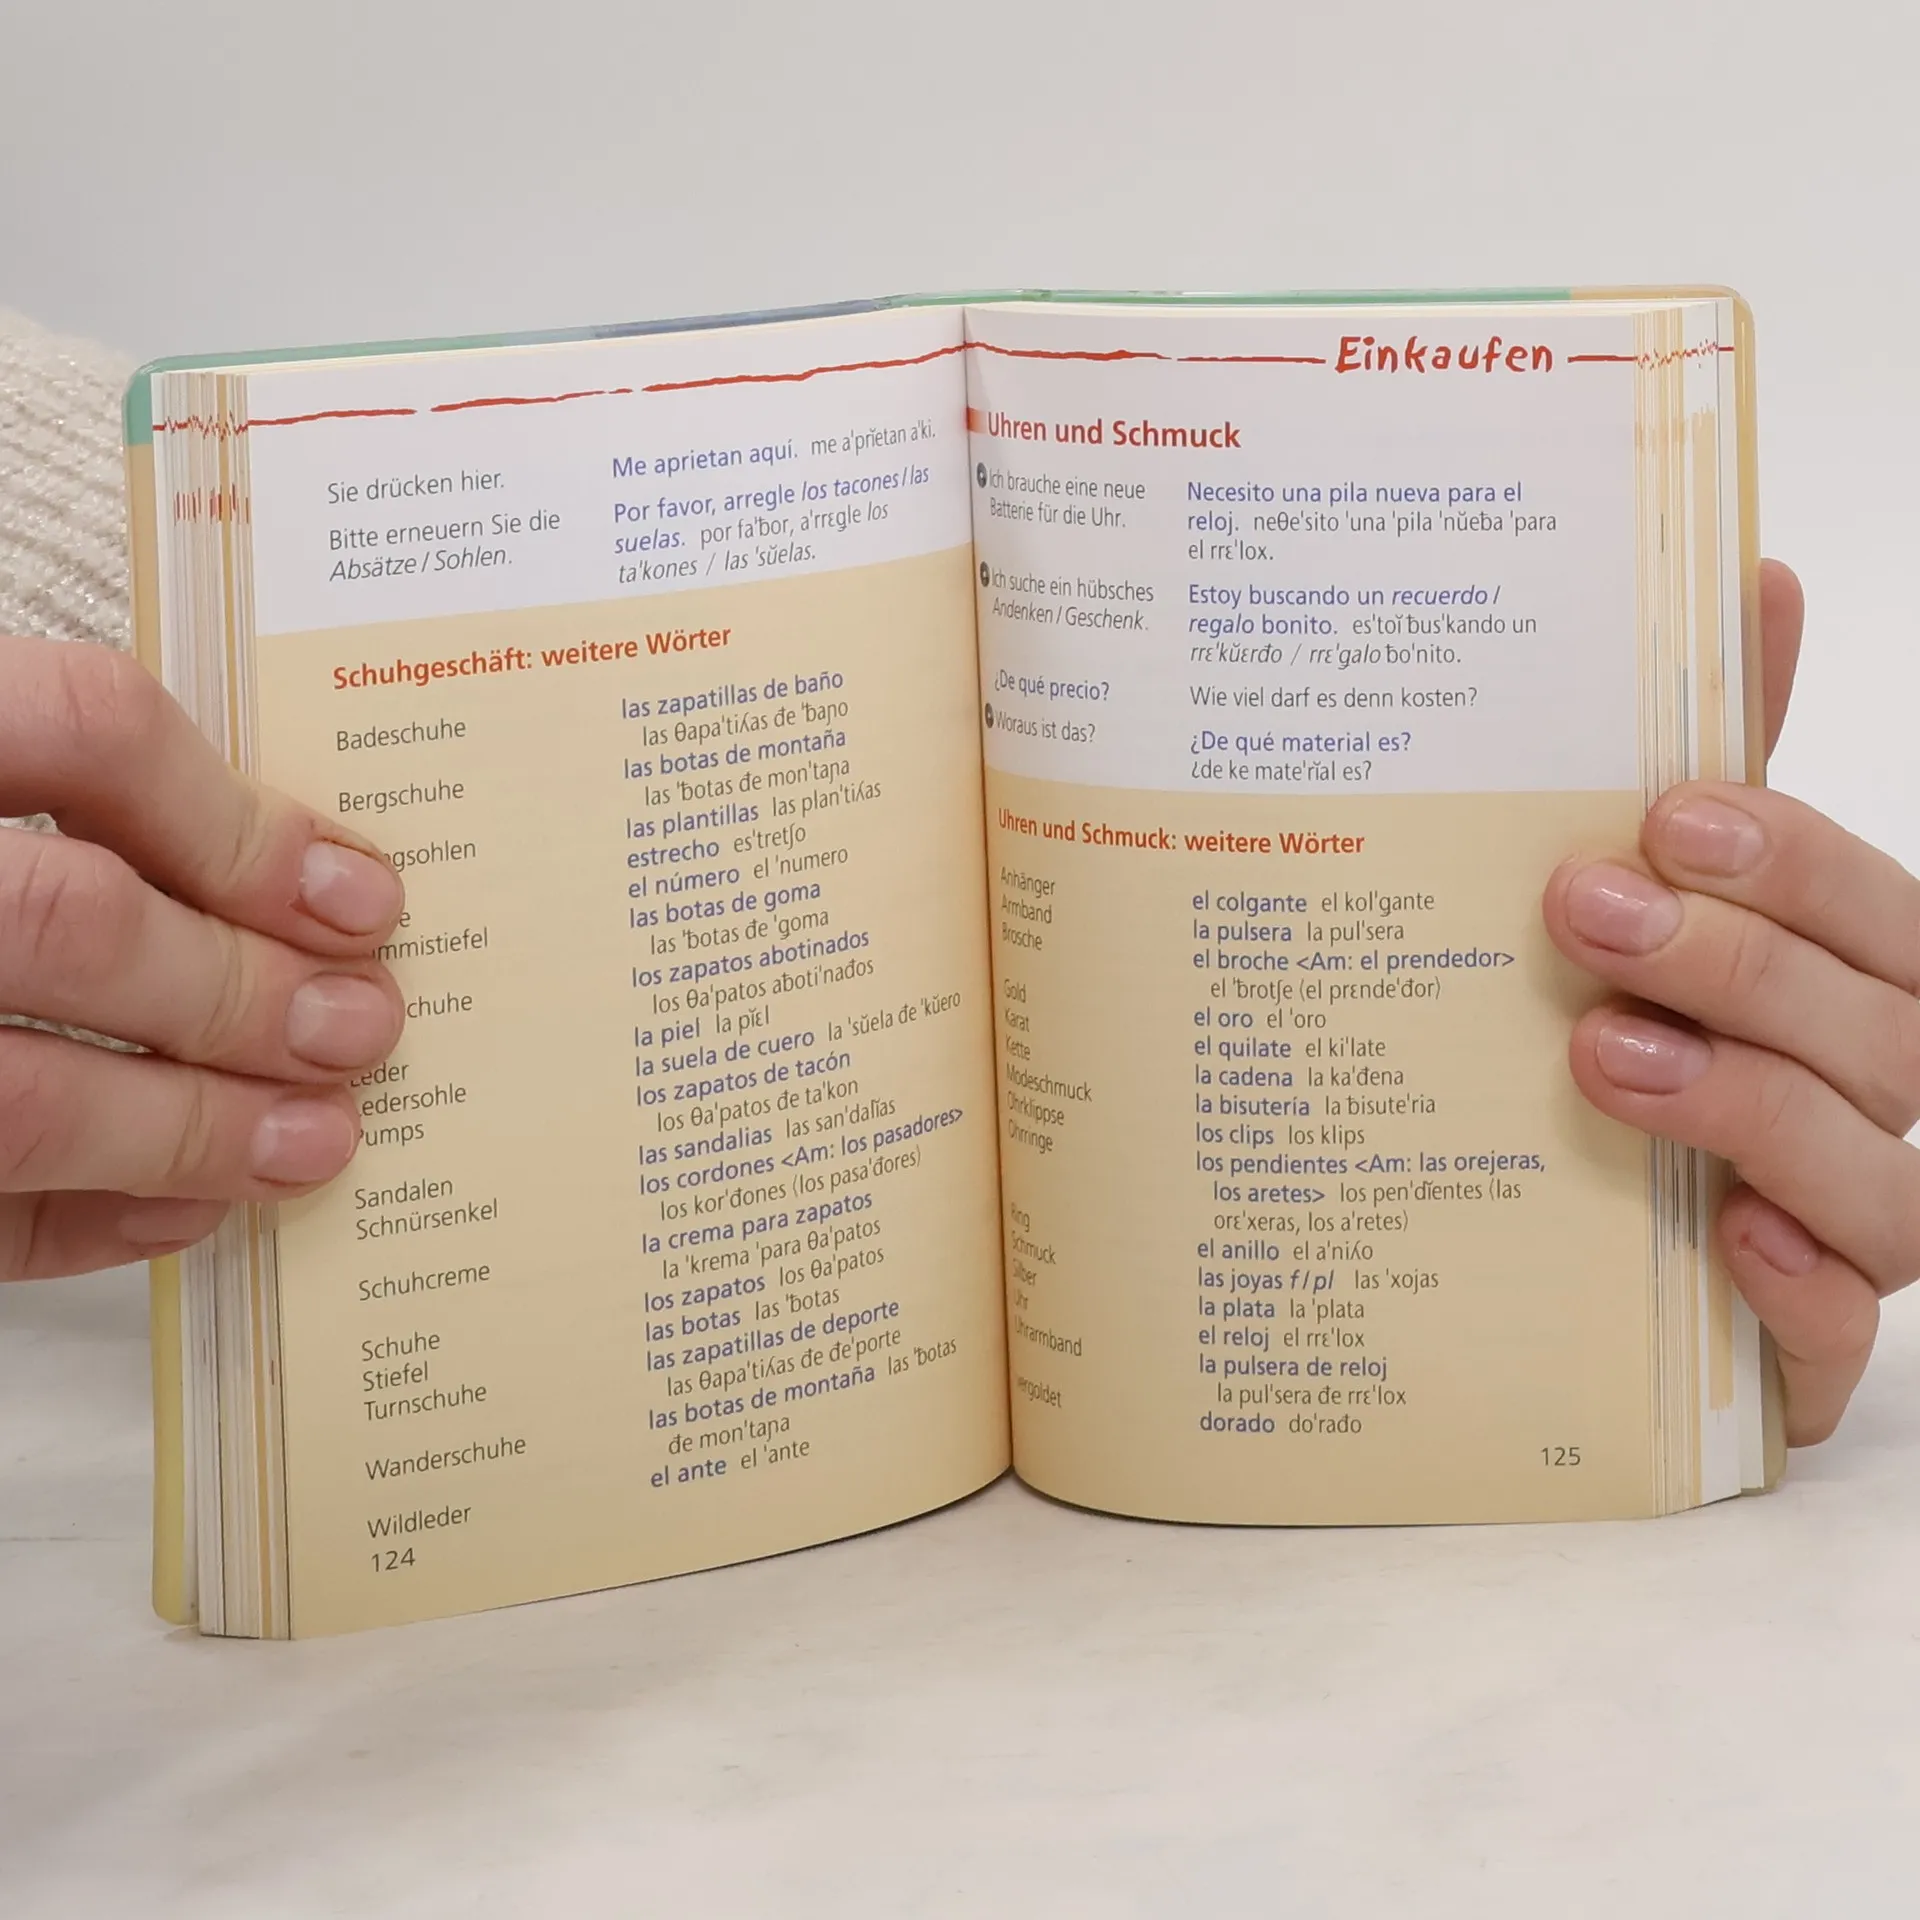 Sie drücken hier.
Me aprietan aquí. me a'prĭetan a'ki.
Bitte erneuern Sie die
Absätze / Sohlen.
Por favor, arregle los tacones / las
suelas. por fa'ƀor, a'rrɛgle los
ta'kones / las 'sŭelas.
Schuhgeschäft: weitere Wörter
Badeschuhe
las zapatillas de baño
las θapa'tiʎas đe 'ƀaɲo
Bergschuhe
las botas de montaña
las 'ƀotas đe mon'taɲa
las plantillas las plan'tiʎas
estrecho es'tretʃo
el número el 'numero
las botas de goma
las 'ƀotas đe 'goma
los zapatos abotinados
los θa'patos aƀoti'nađos
Leder
la piel la pĭɛl
Ledersohle
la suela de cuero la 'sŭela đe 'kŭero
Pumps
los zapatos de tacón
los θa'patos đe ta'kon
Sandalen
las sandalias las san'dalĭas
Schnürsenkel
los cordones <Am: los pasadores>
los kor'đones (los pasa'đores)
Schuhcreme
la crema para zapatos
la 'krema 'para θa'patos
Schuhe
los zapatos los θa'patos
Stiefel
las botas las 'ƀotas
Turnschuhe
las zapatillas de deporte
las θapa'tiʎas đe đe'porte
Wanderschuhe
las botas de montaña las 'ƀotas
đe mon'taɲa
Wildleder
el ante el 'ante
124
Einkaufen
Uhren und Schmuck
Ich brauche eine neue
Batterie für die Uhr.
Necesito una pila nueva para el
reloj. neθe'sito 'una 'pila 'nŭeƀa 'para
el rrɛ'lox.
Ich suche ein hübsches
Andenken / Geschenk.
Estoy buscando un recuerdo /
regalo bonito. es'toĭ ƀus'kando un
rrɛ'kŭɛrđo / rrɛ'galo ƀo'nito.
¿De qué precio?
Wie viel darf es denn kosten?
Woraus ist das?
¿De qué material es?
¿de ke mate'rĭal es?
Uhren und Schmuck: weitere Wörter
Anhänger
el colgante el kol'gante
Armband
la pulsera la pul'sera
Brosche
el broche <Am: el prendedor>
el 'ƀrotʃe (el prɛnde'đor)
Gold
el oro el 'oro
Karat
el quilate el ki'late
Kette
la cadena la ka'đena
Modeschmuck
la bisutería la ƀisute'ria
Ohrklippse
los clips los klips
Ohrringe
los pendientes <Am: las orejeras,
los aretes> los pen'dĭentes (las
orɛ'xeras, los a'retes)
Ring
el anillo el a'niʎo
Schmuck
las joyas f/pl las 'xojas
Silber
la plata la 'plata
Uhr
el reloj el rrɛ'lox
Uhrarmband
la pulsera de reloj
la pul'sera đe rrɛ'lox
vergoldet
dorado do'rađo
125